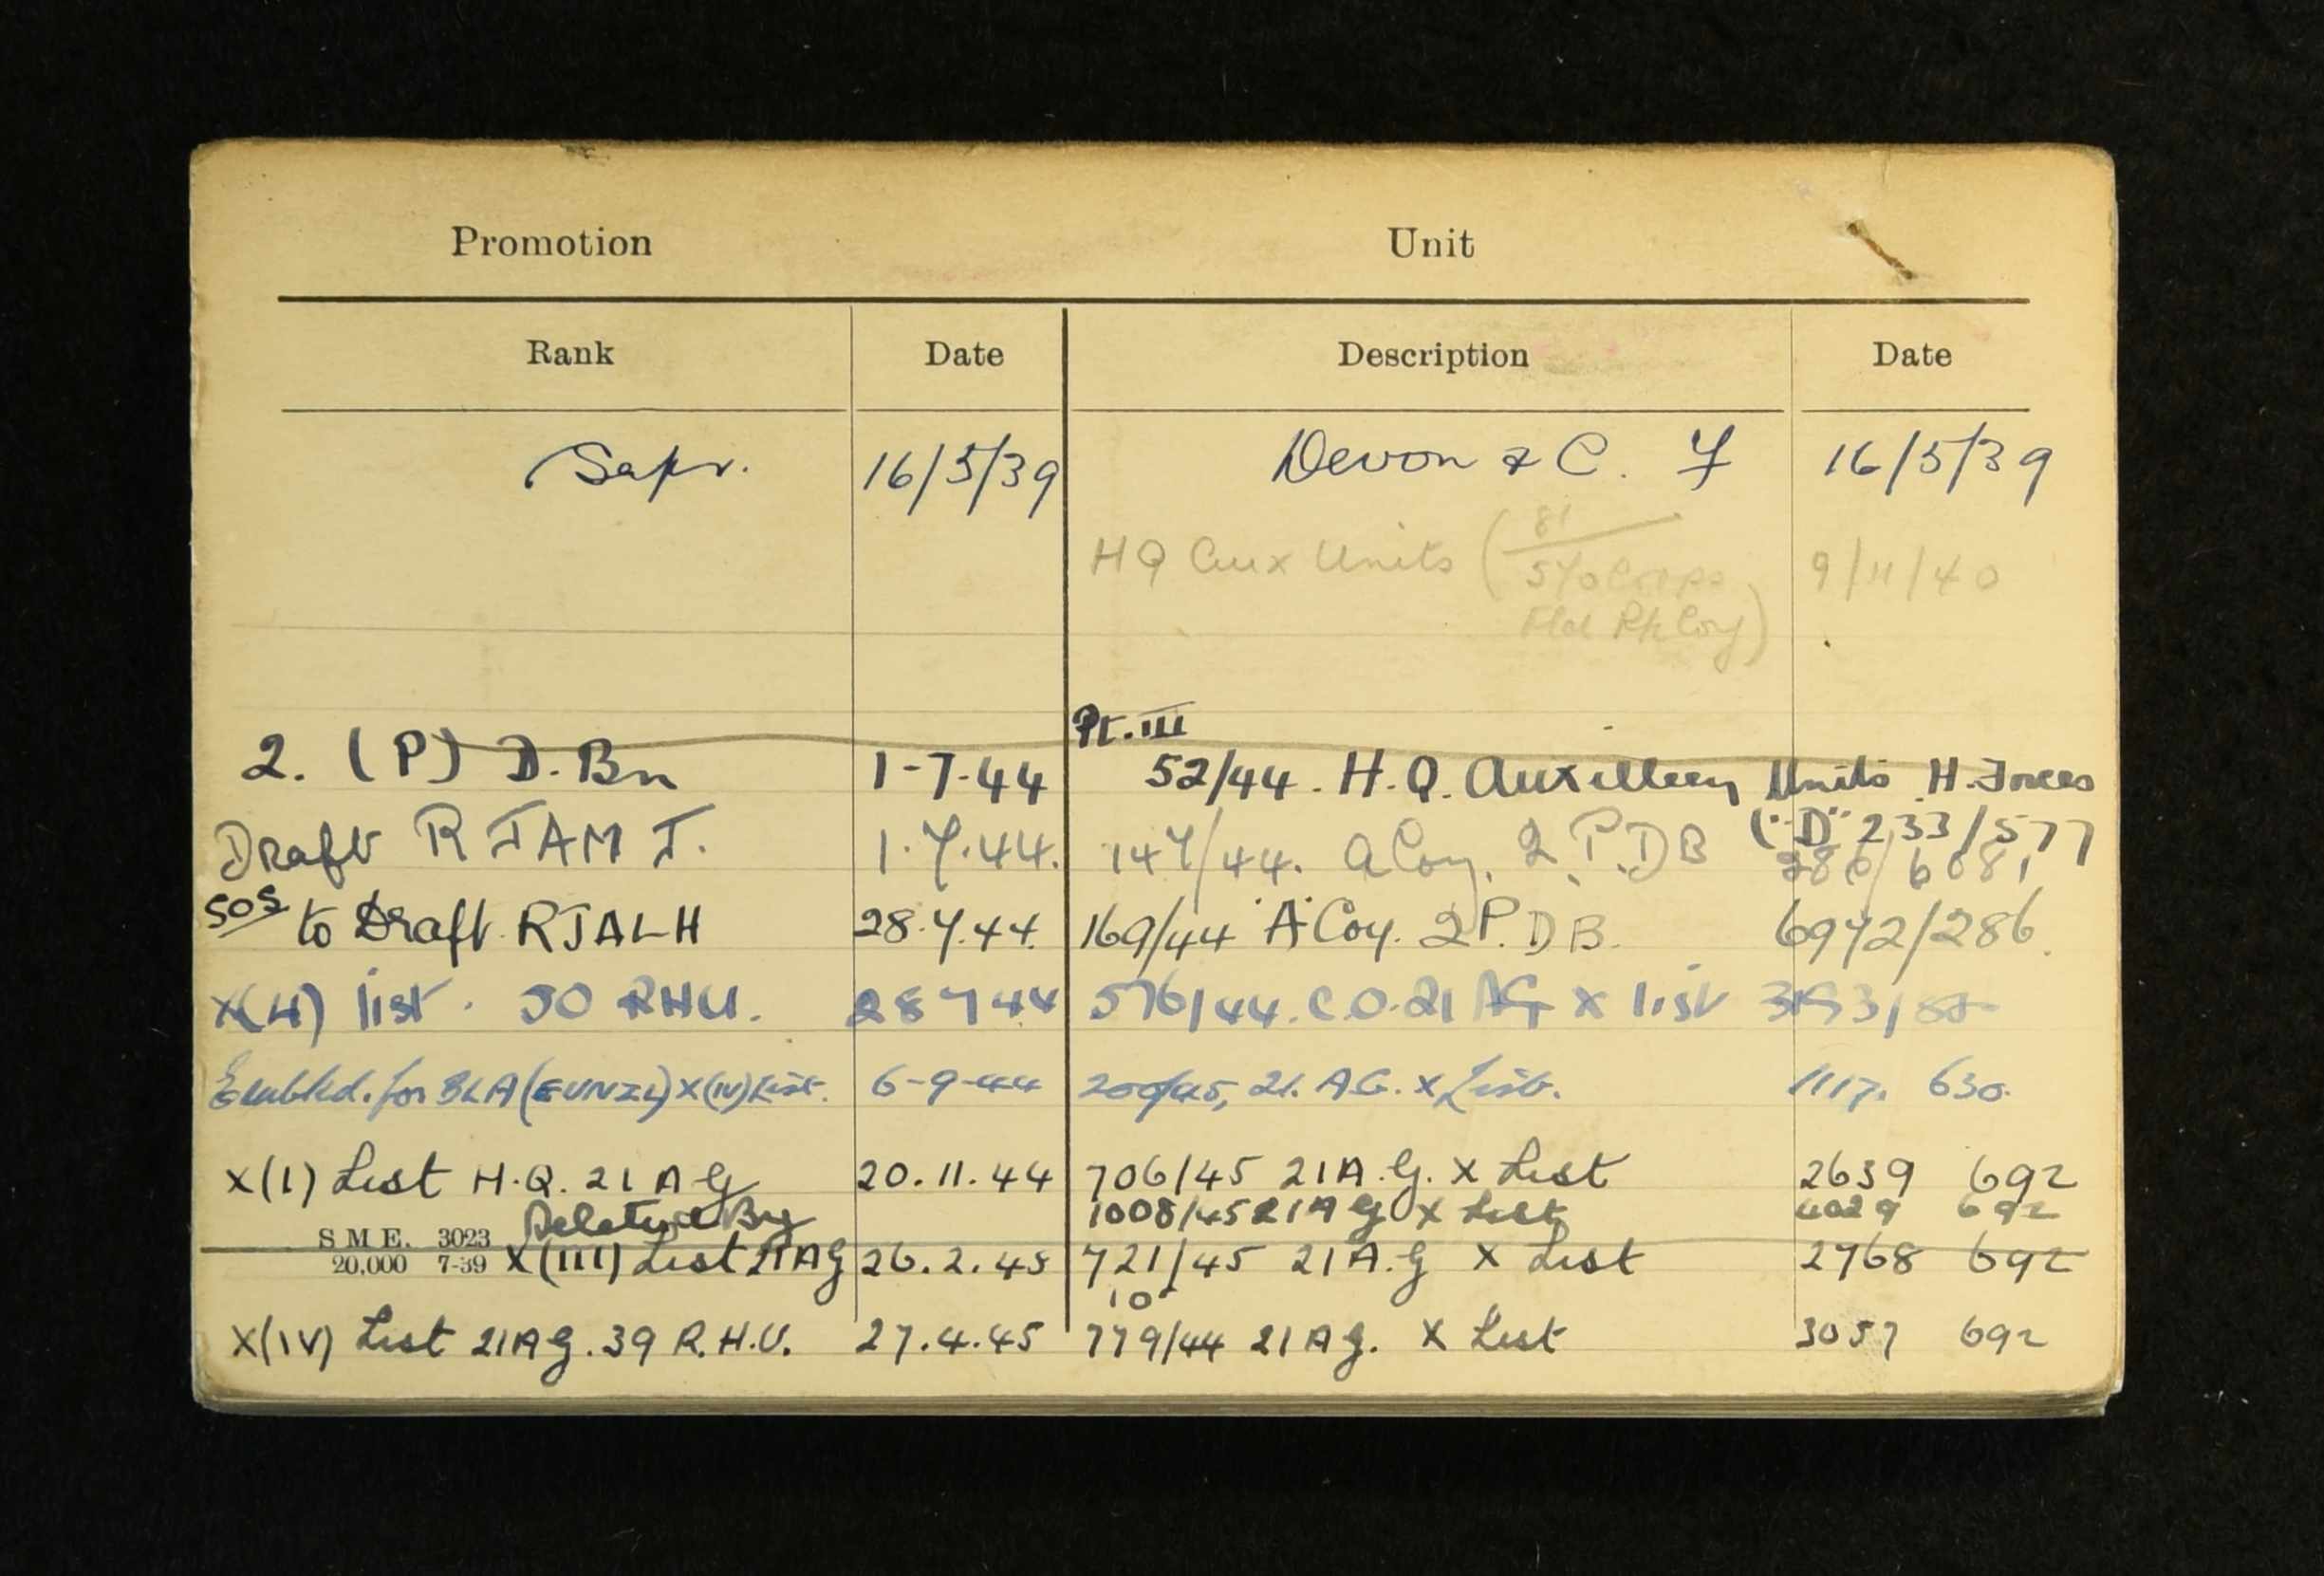 Promotion Unit
Rank Date Description Date
Sapr. 16/5/39 Devon & C. F 16/5/39
HQ Aux Units ( 81 9/11/40
570 Corps
Fld Pk Coy)
Pt. III
2. (P) D. Bn 1-7-44 52/44. H.Q. Auxillery Units H. Forces
("D" 233/577
Draft RJAMJ. 1.7.44. 147/44. A Coy. 2 P.D B
sos to Draft RJALH 28.7.44. 169/44 "A" Coy. 2 P.D B. 6972/286.
X(4) list. 50 RHU. 28 7 44 576/44. C.O. 21 AG X list
Embkd. for BLA (EUNZL) X(IV) List. 6-9-44 200/45, 21. A.G. X List. 1117. 630.
X(I) List H.Q. 21 A G 20.11.44 706/45 21 A.G. X List 2639 692
Deleted By 1008/45 21 A G X List 4029 692
S M E. 3023
20,000 7-39 X(III) List 21 AG 26.2.45 721/45 21 A.G X List 2768 692
10
X(IV) List 21 AG. 39 R.H.U. 27.4.45 779/44 21 AG. X List 3057 692